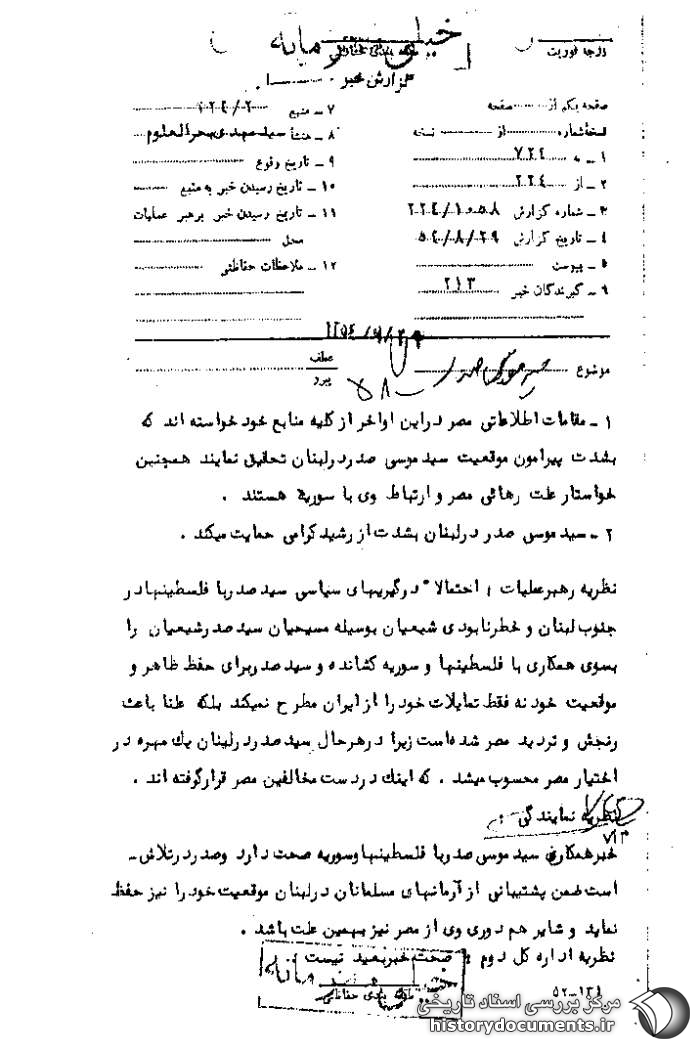 خیلی محرمانه
درجه فوریت
طبقه بندی حفاظتی
گزارش خبر
صفحه یکم از صفحه
نسخه شماره از نسخه
۱ ـ به ۷۲۴
۲ ـ از ۲۲۴
۳ ـ شماره گزارش ۲۲۴/۱۰۵۸
۴ ـ تاریخ گزارش ۵۴/۸/۲۹
۵ ـ پیوست
۶ ـ گیرندگان خبر ۲۱۳
۷ ـ منبع
۸ ـ منشأ سید مهدی بحرالعلوم
۹ ـ تاریخ وقوع
۱۰ ـ تاریخ رسیدن خبر به منبع
۱۱ ـ تاریخ رسیدن خبر برهبر عملیات
محل
۱۲ ـ ملاحظات حفاظتی
موضوع سید موسی صدر
عطف
پیرو
۱ ـ مقامات اطلاعاتی مصر دراین اواخر ازکلیه منابع خود خواسته اند که
بشدت پیرامون موقعیت سید موسی صدردرلبنان تحقیق نمایند همچنین
خواستار علت رهائی مصر و ارتباط وی با سوریه هستند .
۲ ـ سید موسی صدر درلبنان بشدت از رشید کرامی حمایت میکند .
نظریه رهبرعملیات : احتمالا" درگیریهای سیاسی سید صدربا فلسطینیهادر
جنوب لبنان و خطرنابودی شیعیان بوسیله مسیحیان سید صدرشیعیان را
بسوی همکاری با فلسطینیها و سوریه کشانده و سید صدربرای حفظ ظاهر و
موقعیت خود نه فقط تمایلات خود را ازایران مطرح نمیکند بلکه علنا باعث
رنجش و تردید مصر شده است زیرا درهرحال سید صدر درلبنان یك مهره در
اختیار مصر محسوب میشد . که اینك دردست مخالفین مصر قرارگرفته اند .
نظریه نمایندگی :
خبرهمکاری سید موسی صدربا فلسطینیهاوسوریه صحت دارد وصدردرتلاش ـ
است ضمن پشتیبانی از آرمانهای مسلمانان درلبنان موقعیت خود را نیز حفظ
نماید و شایر هم دوری وی از مصر نیز بهمین علت باشد .
نظریه اداره کل دوم : صحت خبربعید نیست .
خیلی محرمانه
طبقه بندی حفاظتی
۵۲-۱۳۱
مرکز بررسی اسناد تاریخی
historydocuments.ir